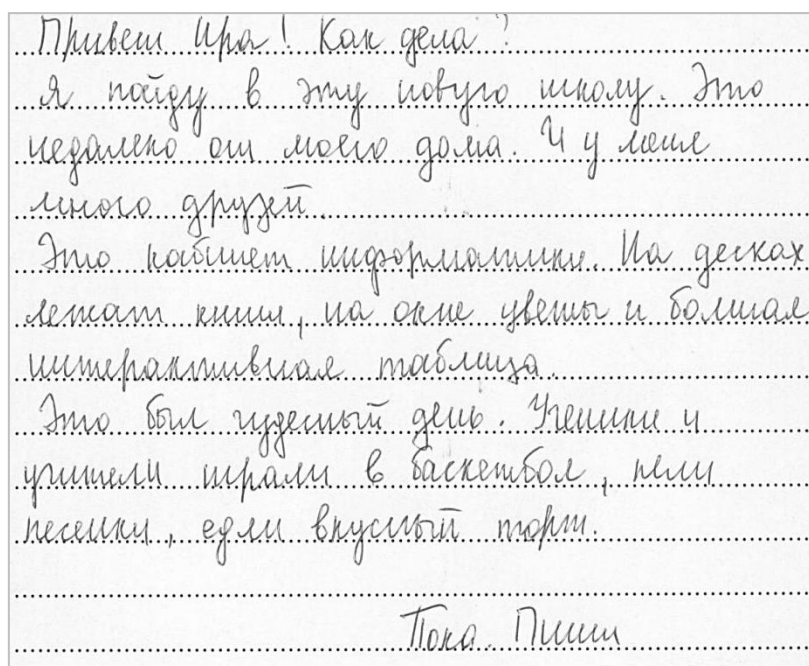 Привет Ира! Как дела?
Я пойду в эту новую школу. Это
недалеко от моего дома. И у меня
много друзей.
Это кабинет информатики. На десках
лежат книги, на окне цветы и большая
интерактивная таблица.
Это был чудесный день. Ученики и
учители играли в баскетбол, пели
песенки, едли вкусный торт.
Пока. Пиши